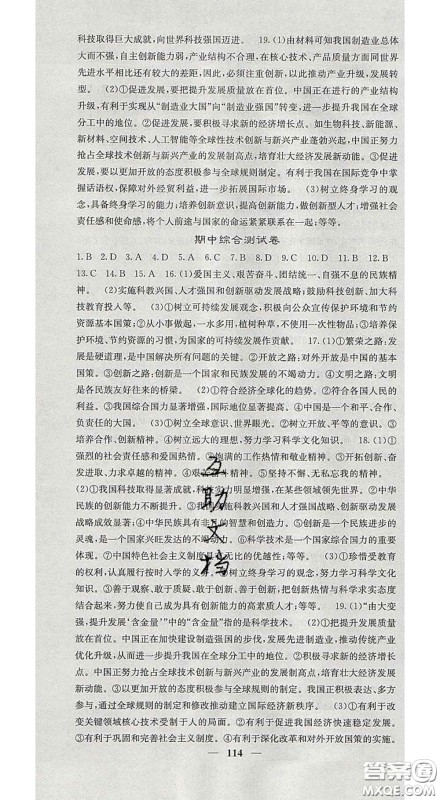 科技取得巨大成就，向世界科技强国迈进。　19.（1）由材料可知我国制造业总体
大而不强，自主创新能力弱，产业结构不合理，在核心技术、产品质量方面同世界
先进水平相比还有较大的差距，因此，必须注重创新，以此推动产业升级，发展转
型。　（2）①促进发展，要把提升发展质量放在首位。中国正在进行的产业结构
升级，有利于实现从“制造业大国”向“制造业强国”转变，进一步提升我国在全球
分工中的地位。②促进发展，要积极寻求新的经济增长点。如生物科技、新能源、
新材料、空间技术、人工智能等全球性技术创新与新兴产业的发展，中国正努力
抢占全球技术创新与新兴产业的发展制高点，培育壮大经济发展新动能。③促进
发展，要以更加开放的态度积极参与全球规则制定。有利于我国在国际竞争中掌
握话语权，保障对外经济利益，进一步拓展国际市场。　（3）树立终身学习的观
念，具备终身学习的能力；提高自己的创新意识和能力，做创新型人才；增强社会
责任感和使命感，将个人前途与国家的命运紧紧联系在一起；等等。
期中综合测试卷
1. B　2. D　3. A　4. C　5. D　6. D　7. C　8. C　9. C　10. D　11. B　12. A
13. C　14. B　15. A　16.（1）爱国主义、艰苦奋斗、团结统一、自强不息的民族精
神。　（2）实施科教兴国、人才强国和创新驱动发展战略；鼓励科技创新、加大科
技教育投入等。　（3）①树立可持续发展观念，积极向公众宣传保护环境和节约
资源基本国策；②从小事做起，一水多用，植树种草，不使用一次性物品；③培养保
护环境、节约资源的习惯；④为国家的可持续发展作贡献。　17.（1）①繁荣之路：发
展是硬道理，是中国解决所有问题的关键。②开放之路：对外开放是中国的基本
国策。③创新之路：创新是一个国家兴旺发达的不竭动力。④文明之路：文明是
各民族友好往来的桥梁。　（2）①符合经济全球化的趋势。②符合各国人民的
利益。③我国综合国力显著增强，国际地位显著提高。④中国是一个和平、合作、
负责任的大国。　（3）①树立全球意识、世界眼光。②树立开放、平等的意识。③
培养合作、创新精神。④树立远大的理想，努力学习科学文化知识。　18.（1）①
强烈的社会责任感和爱国热情。②饱满的工作热情与敬业精神。③开拓创新、奋
发进取、力求卓越的精神。④艰苦奋斗的精神。⑤坚持不懈、无私忘我的精神。
（2）①我国科技取得显著成就，科技实力明显增强，在某些领域领先世界。②中华
民族的创新能力不断提升。③我国实施科教兴国和人才强国战略，创新驱动发展
战略成效显著。④中华民族具有非凡的智慧和创造力。⑤创新是民族进步的
灵魂，是一个国家兴旺发达的不竭动力。⑥科技水平是一个国家综合国力的重要
体现。⑦中国特色社会主义制度具有无比的优越性；等等。　（3）①珍惜受教育
的权利，认真履行按时入学等义务。②树立终身学习的观念，努力学习科学文化
知识。③善于观察、敢于质疑、敢于创新，把创新热情和科学求实态度结合起来，
多动脑、多动手，努力使自己成为具有创新能力的高素质人才；等等。　19.（1）“由大变
强，提升发展‘含金量’”中的“含金量”指的是科学技术。　（2）①把提升发展质量
放在首位。中国正在加快建设制造强国，加快发展先进制造业，推动传统产业
优化升级，从而进一步提升我国在全球分工中的地位。②积极寻求新的经济增长
点。中国正努力抢占全球技术创新与新兴产业的发展制高点，培育壮大经济发展
新动能。③以更加开放的态度积极参与全球规则的制定。中国正积极表达、多方
参与，通过全球规则的制定和修改推动建立国际经济新秩序。　（3）①有利于改
变关键领域核心技术受制于人的局面。②有利于我国经济快速稳定发展。③有
利于巩固和完善社会主义制度。④有利于深化改革和对外开放政策的实施。
互助文档
114
答案圈
MXQE.COM